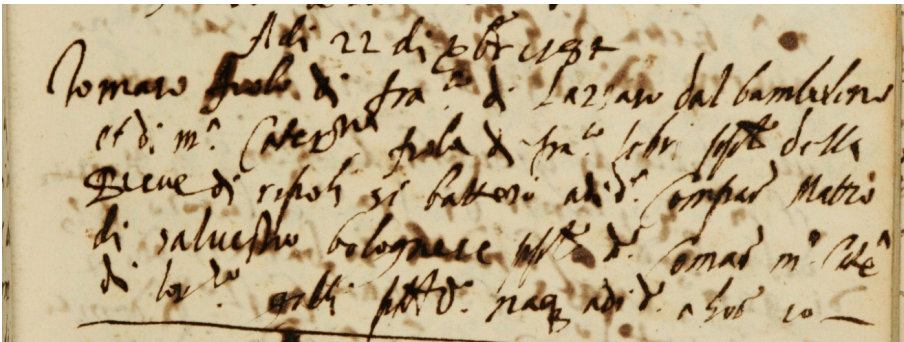 Adi 22 di Xbre 1584
Tomaso figlolo di fra.co di Lazzaro dal bambolino
et di m.a Caterina figlola di fra.co popolo della
Pieve di ripoli si battezò adi d.o Compar Matteo
di salvestro bolognese popolo d.o Comar m.a Cate
di popolo d.o nacq adi d.o a hore 10